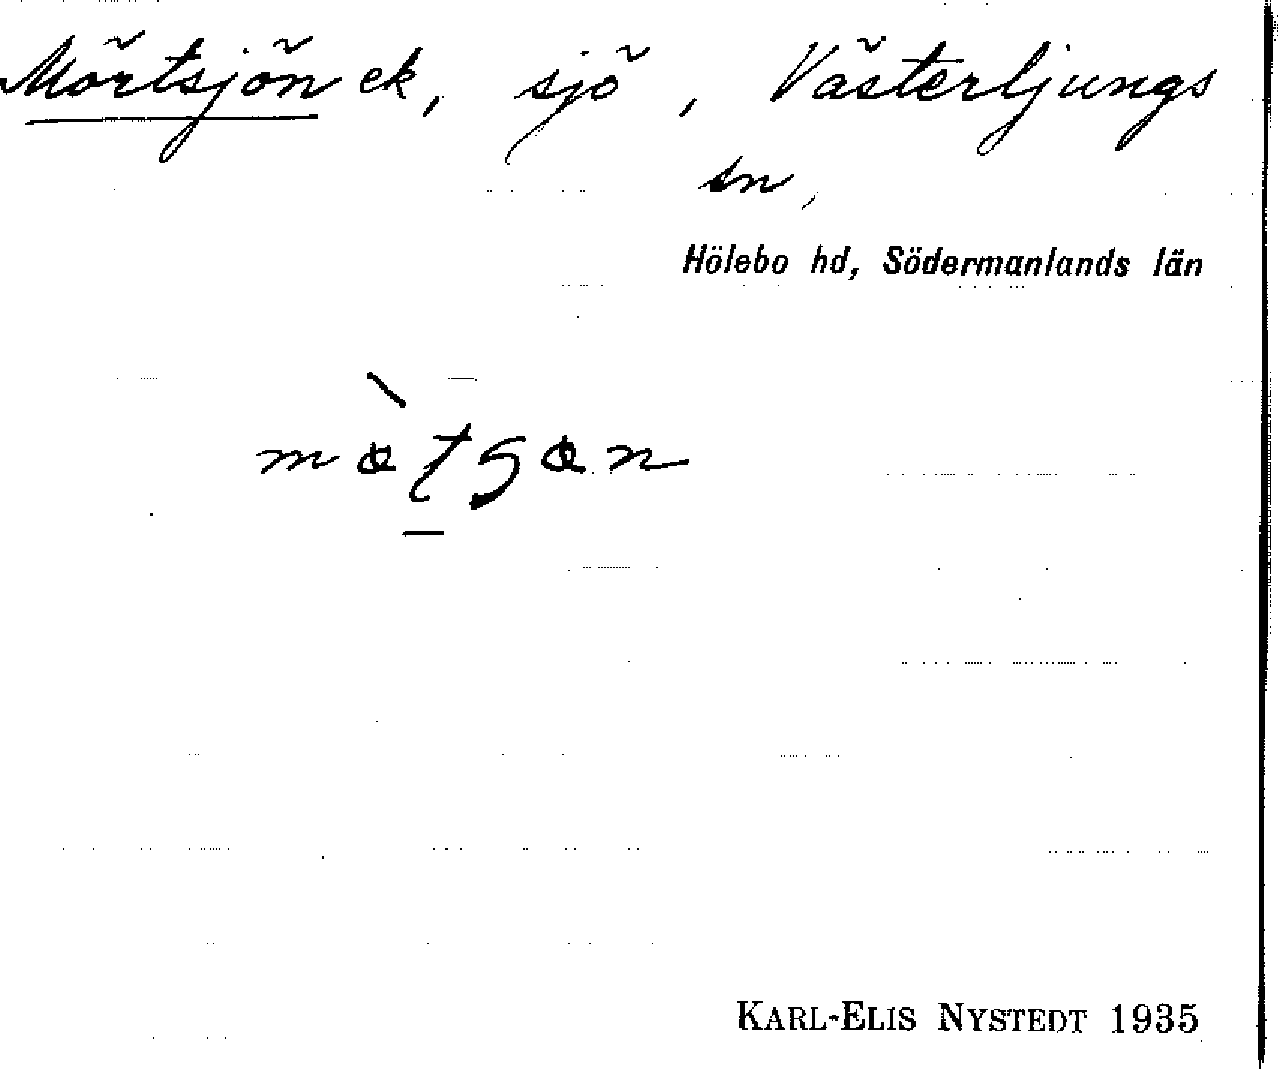 Mörtsjön ek, sjö, Västerljungs
sn,
Hölebo hd, Södermanlands län
KARL-ELIS NYSTEDT 1935